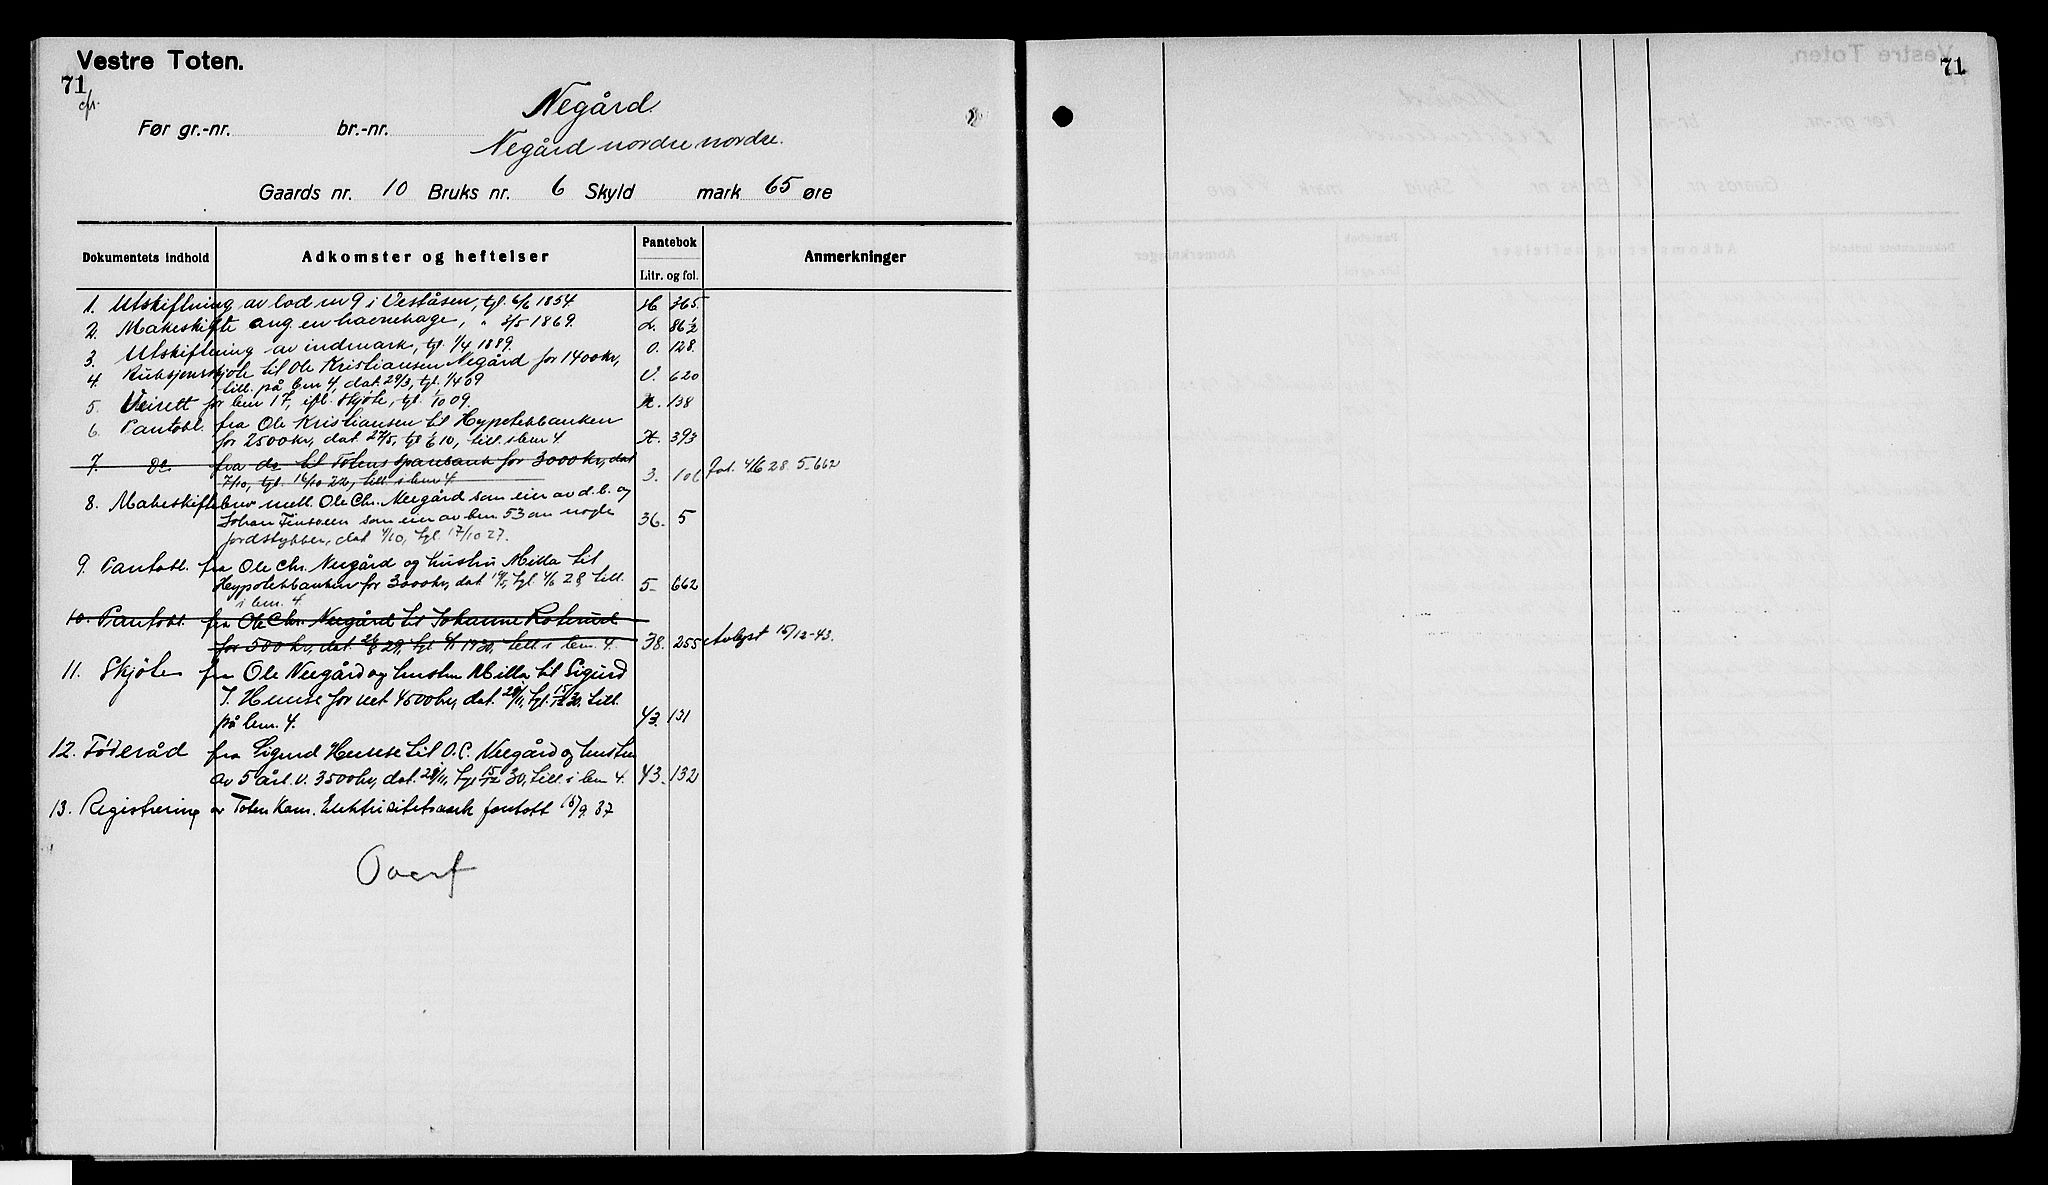 Vestre Toten.
71
cfr.
Negård.
Før gr.-nr. br.-nr.
Negård nordre nordre.
Gaards nr. 10 Bruks nr. 6 Skyld mark 65 øre
Dokumentets indhold Adkomster og heftelser Pantebok Litr. og fol. Anmerkninger
1. Utskiftning av lod nr 9 i Veståsen, tgl. 6/6 1854. H 365.
2. Makeskifte ang. en havnehage, " 3/5 1869. L. 86 1/2
3. Utskiftning av indmark, tgl. 1/4 1889. O. 128.
4. Auksjonsskjøte til Ole Kristiansen Negård for 1400 kr,
till. på bnr 4, dat. 29/3, tgl. 1/4 09 V. 620
5. Veirett for bnr 17, ifl. skjøte, tgl. 09. 138
6. Pantobl. fra Ole Kristiansen til Hypotekbanken
for 2500 kr, dat 27/5, tgl 10, till. i bnr 4 393
7. Do fra do til Totens Sparebank for 3000 kr, dat
7/10, tgl. 16/10 22, till. i bnr 4 3. 106 4/6 28. 5-662
8. Makeskiftebrev mell. Ole Chr. Neegård som eier av d.b. og
Johan Finsveen som eier av bnr. 53 om nogle
jordstykker, dat. 4/10, tgl. 17/10 27. 36. 5
9. Pantobl. fra Ole Chr. Neegård og hustru Milla til
Hypotekbanken for 3000 kr, dat tgl. 4/6 28, till.
i bnr. 4 5- 662
10. Pantobl. fra Ole Chr. Neegård til Johanne Roterud
for 500 kr, dat. 29, tgl 1930, till i bnr. 4. 38. 255 Avlyst 15/12-43.
11. Skjøte fra Ole Neegård og hustru Milla til Sigurd
J. Hemse for 4500 kr, dat. 28/11, tgl. 15/12 30, till.
på bnr. 4. 43. 131
12. Føderåd fra Sigurd Hemse til O.C. Neegård og hustru
av 5 årl. v. 3500 kr, dat. 28/11, tgl 15/12 30, till. i bnr 4. 43. 132
13. Registrering av Toten Kom. Elektrisitetsverk foretatt 15/9 37
Overf
71